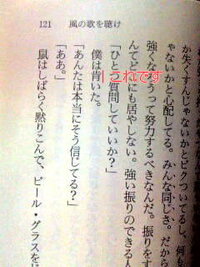 121　風の歌を聴け
か失くすんじゃないかとビクついてるし、何も
ゃないかと心配してる。みんな同じさ。だから
強くなろうって努力するべきなんだ。振りをす
んてどこにも居やしない。強い振りのできる人
「ひとつ質問していいか？」
これです
僕は肯いた。
「あんたは本当にそう信じてる？」
「ああ。」
鼠はしばらく黙りこんで、ビール・グラスを